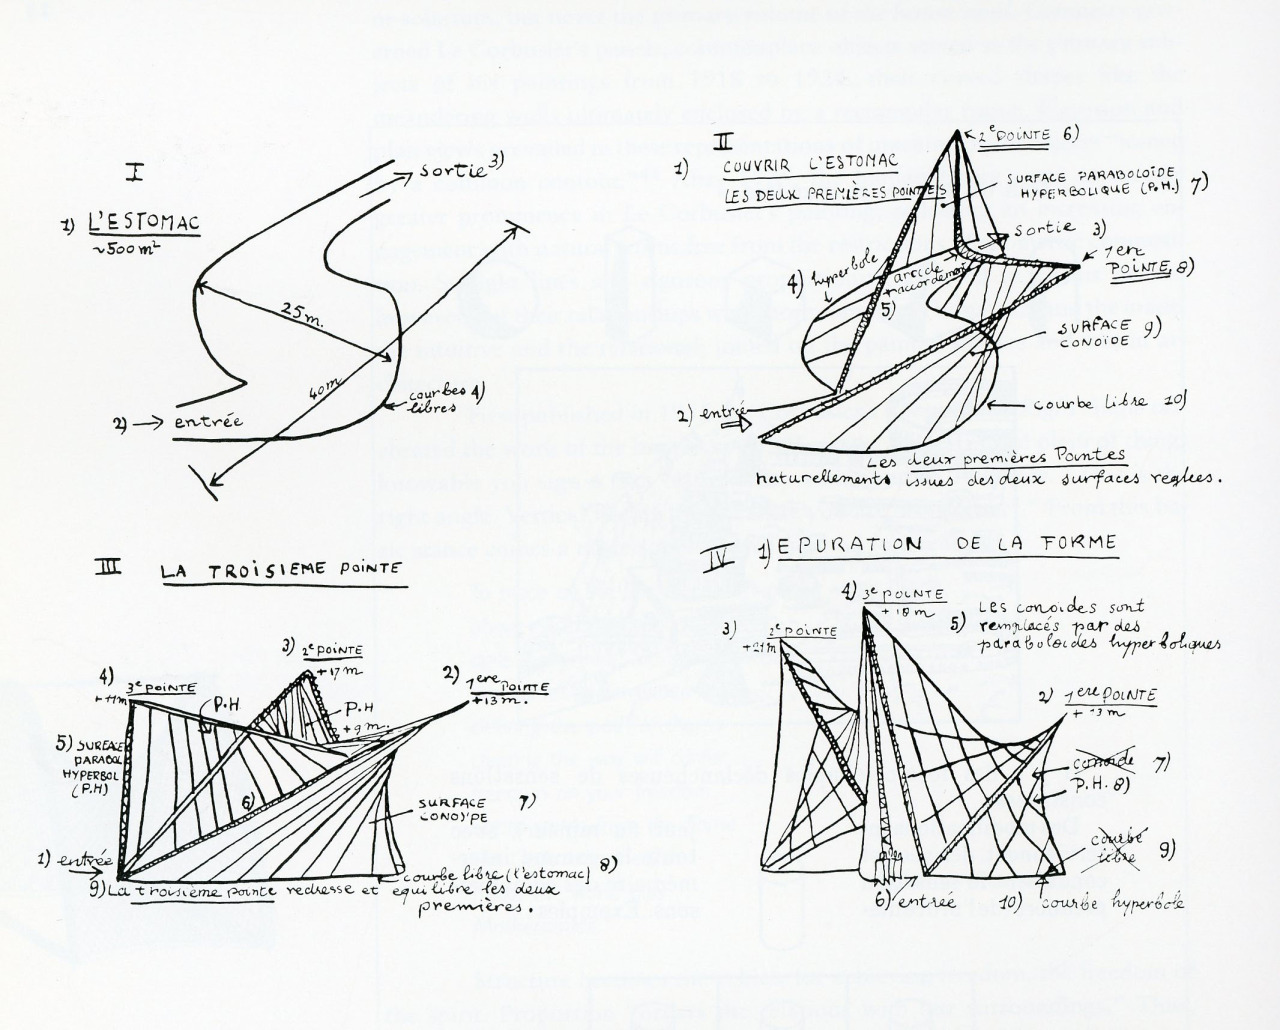 I
1) L'ESTOMAC
~500m²
sortie 3)
25m.
40m
courbes 4)
libres
2) → entrée
II
1) COUVRIR L'ESTOMAC
LES DEUX PREMIÈRES POINTES
2e POINTE 6)
SURFACE PARABOLOÏDE
HYPERBOLIQUE (P.H.) 7)
sortie 3)
1ere
POINTE 8)
4) hyperbole
arc de
raccordement
5)
SURFACE 9)
CONOIDE
2) entrée
courbe libre 10)
Les deux premières Pointes
naturellement issues des deux surfaces reglées.
III LA TROISIEME POINTE
3) 2e POINTE
+17m
4) 3e POINTE
+11m
2) 1ere POINTE
+13m.
P.H
P.H
+9m.
5) SURFACE
PARABOL
HYPERBOL
(P.H)
6)
SURFACE 7)
CONOÏDE
1) entrée
courbe libre (l'estomac) 8)
9) La troisième pointe redresse et equilibre les deux
premières.
IV 1) EPURATION DE LA FORME
4) 3e POINTE
+18m
3) 2e POINTE
+21m
5) Les conoides sont
remplacés par des
paraboloides hyperboliques
2) 1ere POINTE
+13m
conoide 7)
P.H. 8)
courbe
libre 9)
6) entrée
10) courbe hyperbole